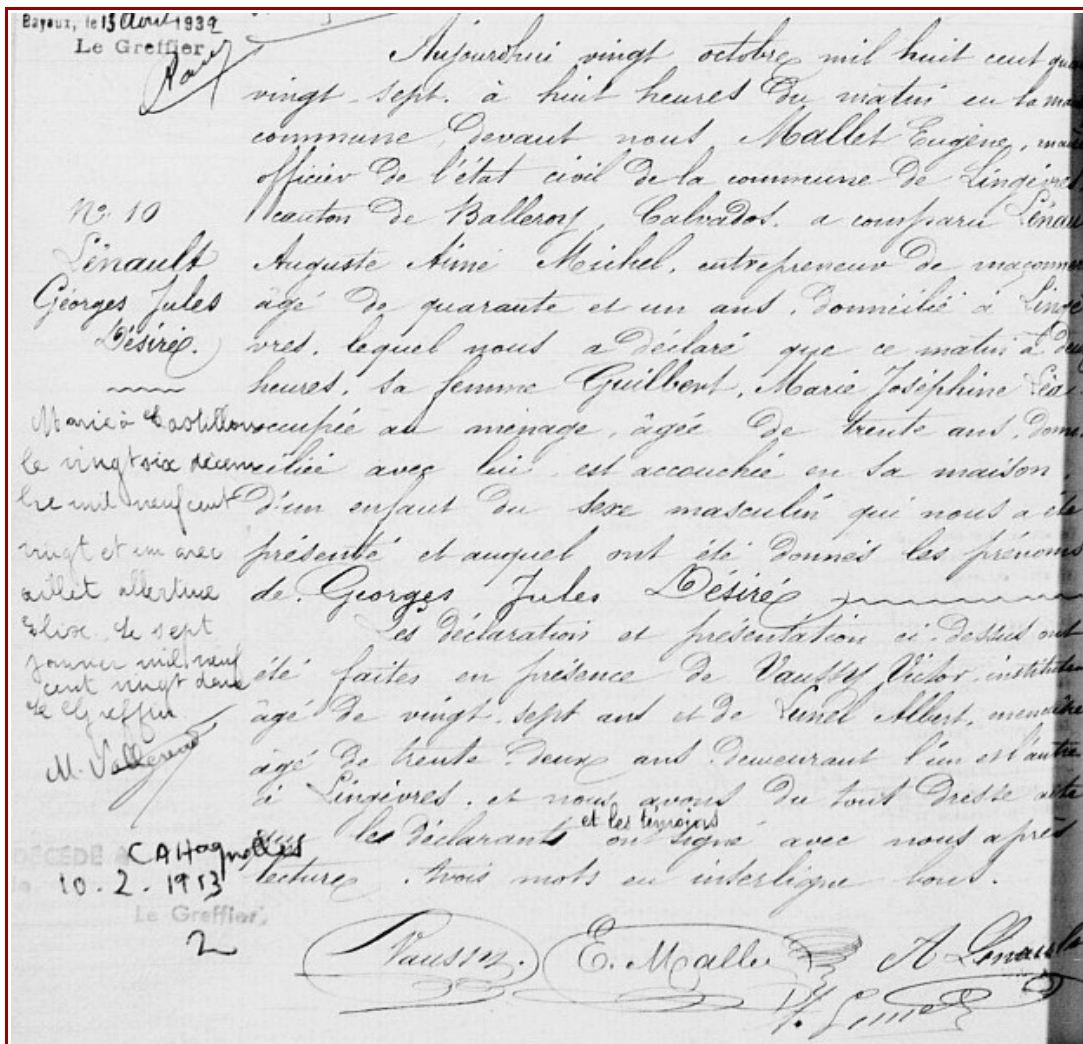 Bayeux, le 13 Avril 1932
Le Greffier
N° 10
Lénault
Georges Jules
Désiré.
Marié à Castillon
le vingt six décem
bre mil neuf cent
vingt et un avec
Albertine
Elise. Le sept
janvier mil neuf
cent vingt deux
Le Greffier
DÉCÉDÉ A CAHagnolles
le 10.2.1953
Le Greffier,
Aujourd'hui vingt octobre mil huit cent quat
vingt-sept. à huit heures du matin en la mai
commune, devant nous, Mallet Eugène, maire
officier de l'état civil de la commune de Lingèvres
canton de Balleroy, Calvados. a comparu Lénau
Auguste Aimé Michel, entrepreneur de maçonner
âgé de quarante et un ans, domicilié à Lingè
vres, lequel nous a déclaré que ce matin à deux
heures, sa femme Guilbert, Marie Joséphine Léa
occupée au ménage, âgée de trente ans, domi
ciliée avec lui est accouchée en sa maison,
d'un enfant du sexe masculin qui nous a été
présenté et auquel ont été donnés les prénoms
de Georges Jules Désiré
Les déclaration et présentation ci-dessus ont
été faites en présence de Vaussy Victor, instituteur
âgé de vingt-sept ans et de Lunel Albert, menuisier
âgé de trente-deux ans demeurant l'un et l'autre
à Lingèvres, et nous avons du tout dressé acte
que les déclarants et les témoins ont signé avec nous après
lecture. Trois mots en interligne bons.
Vaussy. E. Mallet A Lénault
A. Lunel